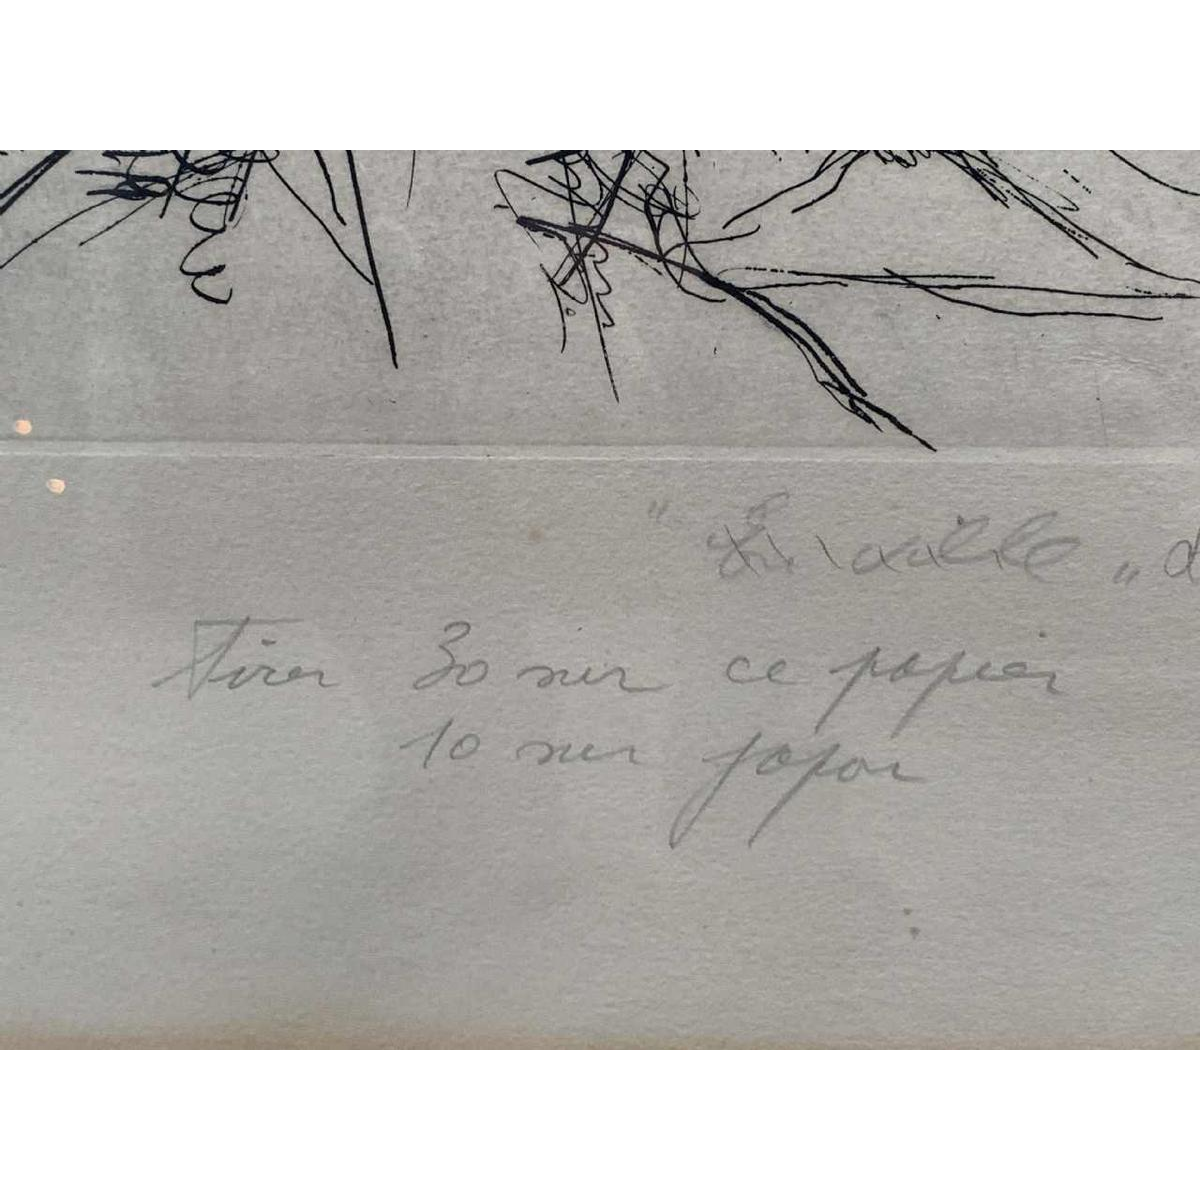 " „ d
Tirer 30 sur ce papier
10 sur japon